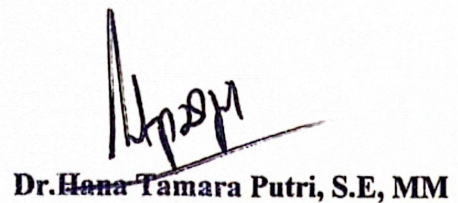 Dr.Hana Tamara Putri, S.E, MM